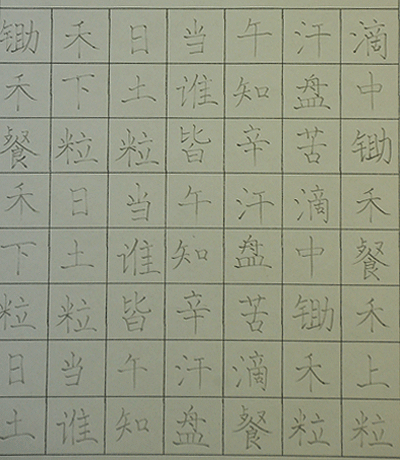 锄禾日当午汗滴
禾下土谁知盘中
餐粒粒皆辛苦锄
禾日当午汗滴禾
下土谁知盘中餐
粒粒皆辛苦锄禾
日当午汗滴禾上
土谁知盘餐粒粒